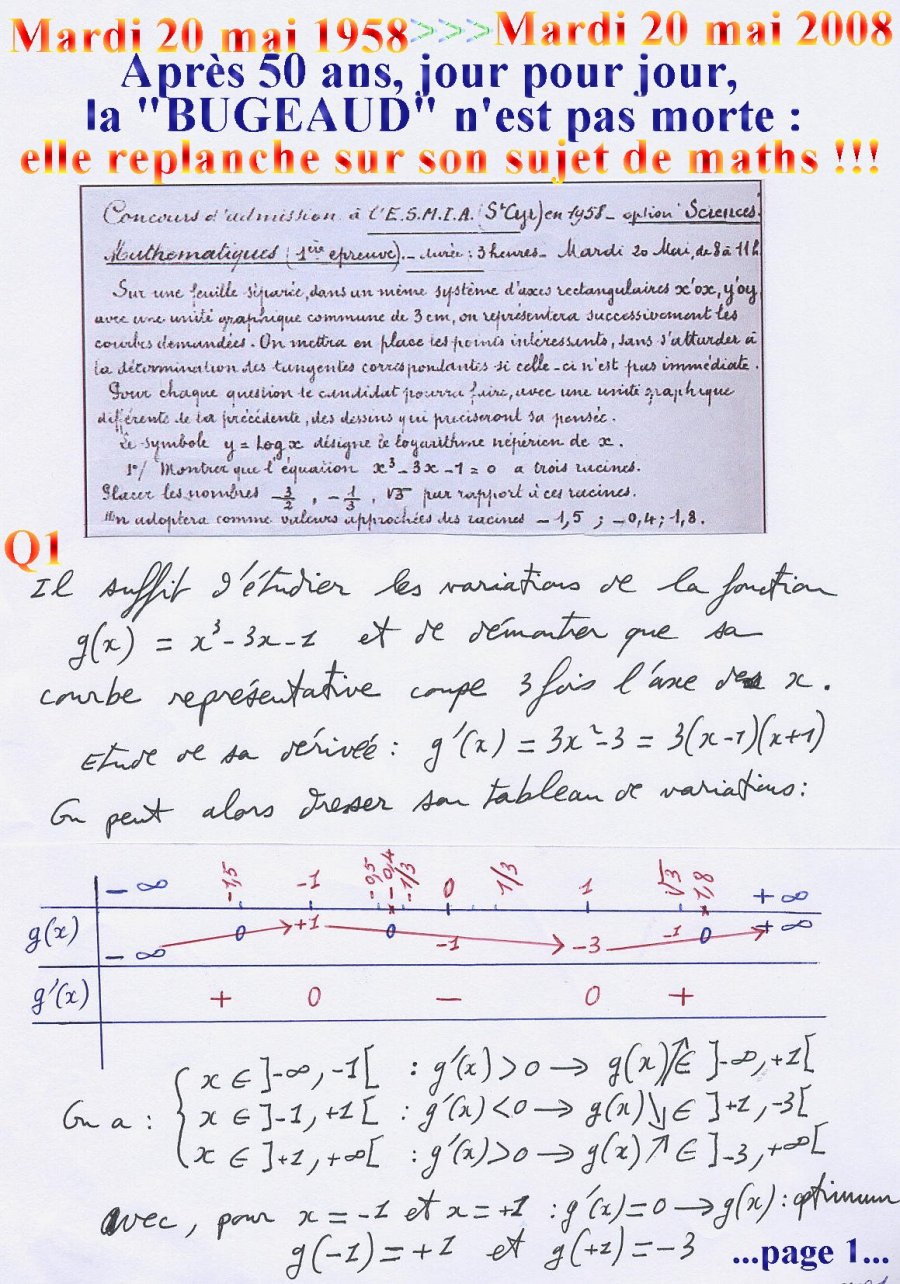 Mardi 20 mai 1958>>>Mardi 20 mai 2008
Après 50 ans, jour pour jour,
la "BUGEAUD" n'est pas morte :
elle replanche sur son sujet de maths !!!
Concours d'admission à l'E.S.M.I.A. (St Cyr) en 1958 - option Sciences.
Mathématiques (1ère épreuve). - durée : 3 heures - Mardi 20 Mai, de 8 à 11h
Sur une feuille séparée, dans un même système d'axes rectangulaires x'ox, y'oy
avec une unité graphique commune de 3 cm, on représentera successivement les
courbes demandées. On mettra en place les points intéressants, sans s'attarder à
la détermination des tangentes correspondantes si celle-ci n'est pas immédiate.
Pour chaque question le candidat pourra faire, avec une unité graphique
différente de la précédente, des dessins qui préciseront sa pensée.
Le symbole y = Log x désigne le logarithme népérien de x.
1°/ Montrer que l'équation x³ - 3x - 1 = 0 a trois racines.
Placer les nombres -3/2 , -1/3 , √3 par rapport à ces racines.
On adoptera comme valeurs approchées des racines - 1,5 ; - 0,4 ; 1,8.
Q1
Il suffit d'étudier les variations de la fonction
g(x) = x³ - 3x - 1 et de démontrer que sa
courbe représentative coupe 3 fois l'axe des x.
Etude de sa dérivée : g'(x) = 3x² - 3 = 3(x-1)(x+1)
On peut alors dresser son tableau de variations :
-∞ -1,5 -1 -0,5 -0,4 -1/3 0 1/3 1 √3 1,8 +∞
g(x) -∞ 0 +1 0 -1 -3 -1 0 +∞
g'(x) + 0 - 0 +
x ∈ ]-∞, -1[ : g'(x) > 0 → g(x) ↗ ∈ ]-∞, +1[
On a : { x ∈ ]-1, +1[ : g'(x) < 0 → g(x) ↘ ∈ ]+1, -3[
x ∈ ]+1, +∞[ : g'(x) > 0 → g(x) ↗ ∈ ]-3, +∞[
avec, pour x = -1 et x = +1 : g'(x) = 0 → g(x) : optimum
g(-1) = +1 et g(+1) = -3
...page 1...